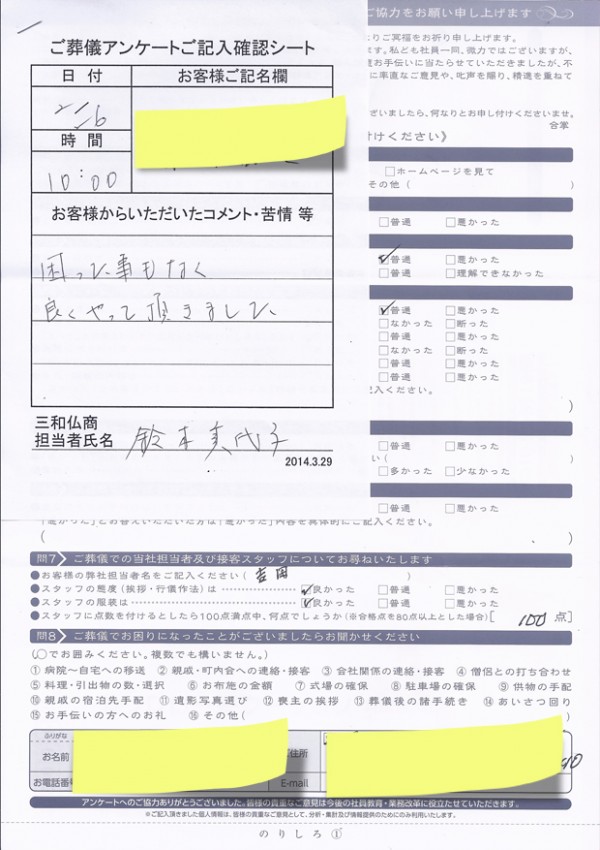 ご葬儀アンケートご記入確認シート
日付
お客様ご記名欄
時間
10:00
お客様からいただいたコメント・苦情 等
困った事もなく
良くやって頂きました。
三和仏商
担当者氏名 鈴木美代子
2014.3.29
ご協力をお願い申し上げます
りご冥福をお祈り申し上げます。
す。私ども社員一同、微力ではございますが、
お手伝いに当たらせていただきましたが、不
に率直なご意見や、叱声を賜り、精進を重ねて
ざいましたら、何なりとお申し付けくださいませ。
合掌
付けください》
□ホームページを見て
その他(
□普通 □悪かった
☑普通 □悪かった
□普通 □理解できなかった
☑普通 □悪かった
□なかった □断った
□普通 □悪かった
□なかった □断った
□普通 □悪かった
□普通 □悪かった
記入ください。
)
□普通 □悪かった
い( )
□多かった □少なかった
□普通 □悪かった
「悪かった」とお答えいただいた方は「悪かった」内容を具体的にご記入ください。
( )
問7 ご葬儀での当社担当者及び接客スタッフについてお尋ねいたします
●お客様の弊社担当者名をご記入ください( 吉田 )
●スタッフの態度(挨拶・行儀作法)は ☑良かった □普通 □悪かった
●スタッフの服装は ☑良かった □普通 □悪かった
●スタッフに点数を付けるとしたら100点満点中、何点でしょうか(※合格点を80点以上とした場合)[ 100 点]
問8 ご葬儀でお困りになったことがございましたらお聞かせください
(○でお囲みください。複数でも構いません。)
①病院~自宅への移送 ②親戚・町内会への連絡・接客 ③会社関係の連絡・接客 ④僧侶との打ち合わせ
⑤料理・引出物の数・選択 ⑥お布施の金額 ⑦式場の確保 ⑧駐車場の確保 ⑨供物の手配
⑩親戚の宿泊先手配 ⑪遺影写真選び ⑫喪主の挨拶 ⑬葬儀後の諸手続き ⑭あいさつ回り
⑮お手伝いの方へのお礼 ⑯その他( )
ふりがな
お名前
ご住所
お電話番号
E-mail
アンケートへのご協力ありがとうございました。皆様の貴重なご意見は今後の社員教育・業務改革に役立たせていただきます。
※ご記入頂きました個人情報は、皆様の貴重なご意見として、分析・集計及び情報提供のためにのみ利用いたします。
のりしろ①